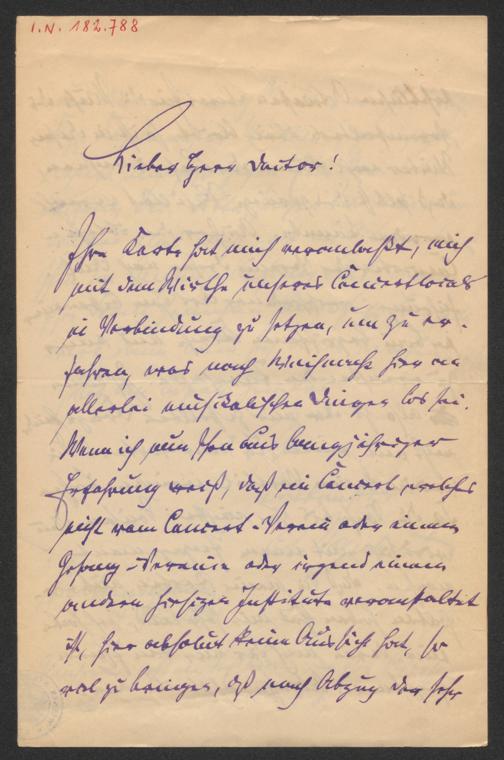 I.N. 182.788
Lieber Herr Doctor!
Ihre Karte hat mich veranlaßt, mich
mit dem Wirthe unseres Concertlocals
in Verbindung zu setzen, um zu er-
fahren, was nach Weihnacht hier an
allerlei musikalischen Dingen los sei.
Wenn ich nun schon aus langjähriger
Erfahrung weiß, daß ein Concert, welches
nicht vom Concert-Verein oder einem
Gesang-Vereine oder irgend einem
andern hiesigen Institute veranstaltet
ist, hier absolut keine Aussicht hat, so
viel zu bringen, daß nach Abzug der sehr